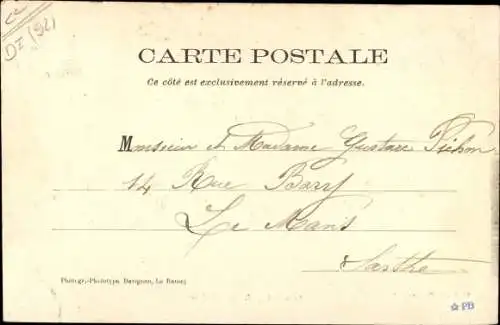 DI (92)
CARTE POSTALE
Ce côté est exclusivement réservé à l'adresse.
Monsieur et Madame Gustave Pichon
14 Rue Barry
Le Mans
Sarthe
Photogr.-Phototypa
PB